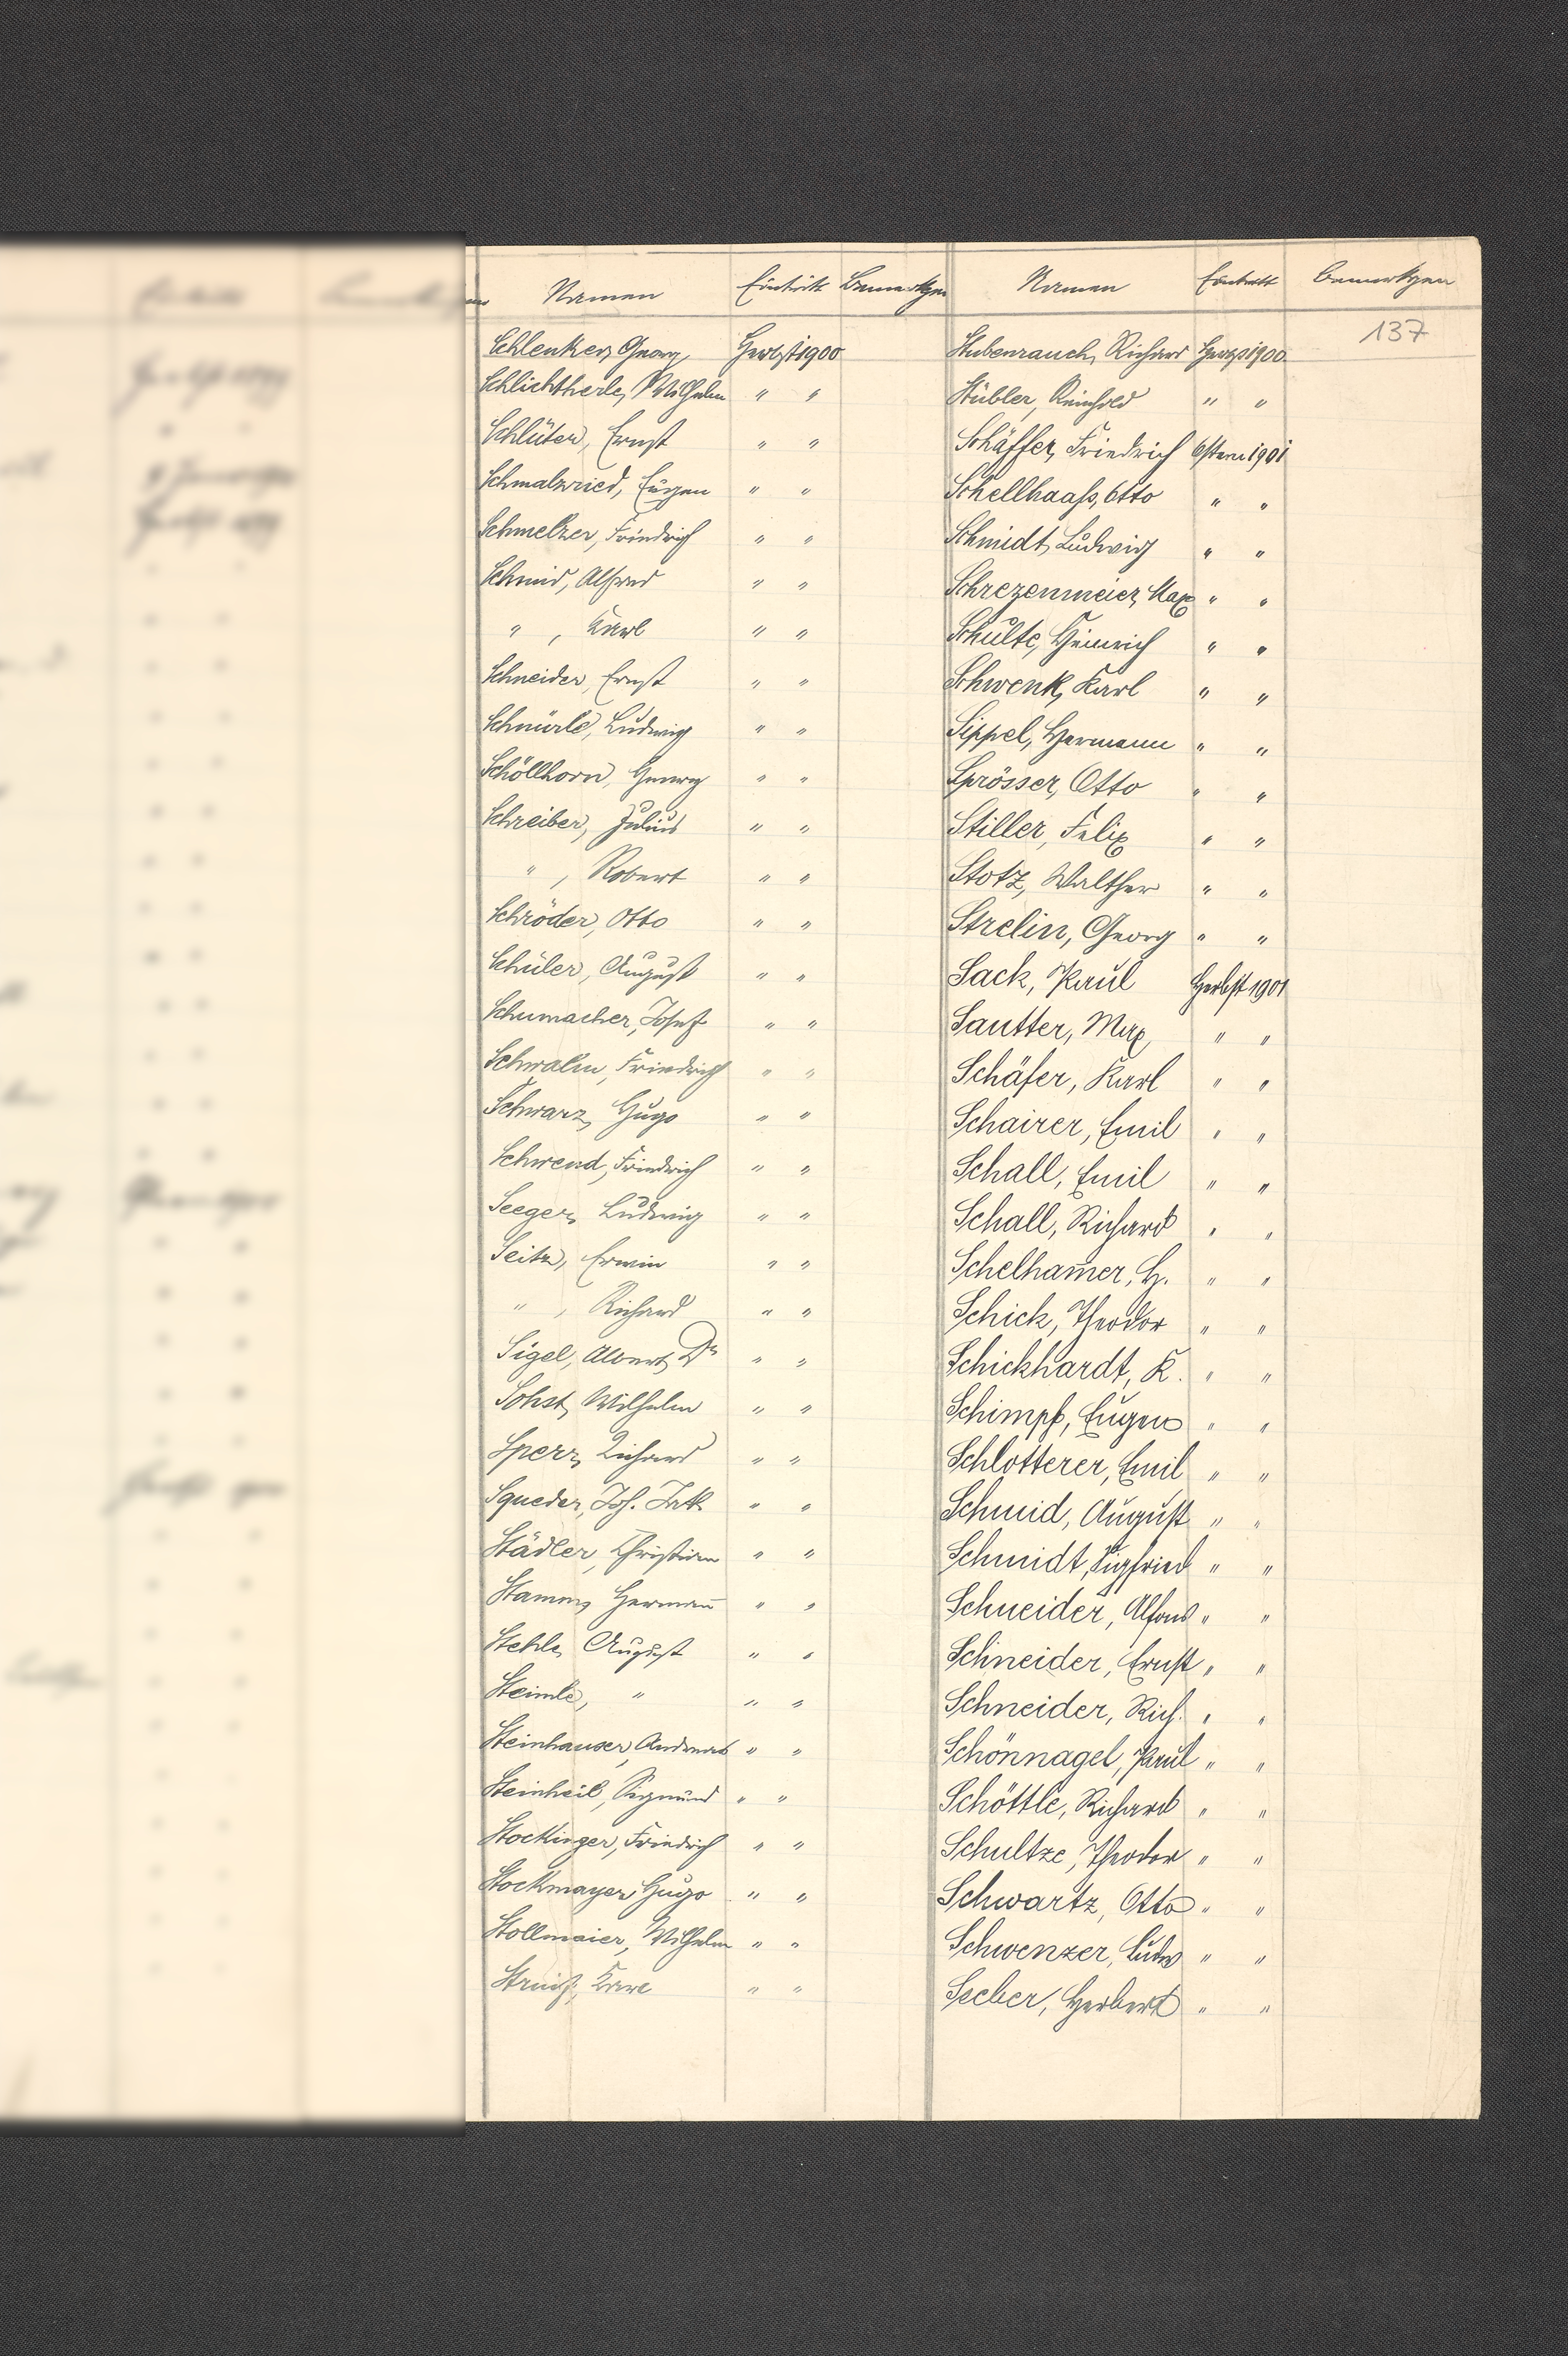 Namen Eintritt Bemerkgen
Schlenker, Georg, Herbst 1900
Schlichtherle, Wilhelm " "
Schlüter, Ernst " "
Schmalzried, Eugen " "
Schmelzer, Friedrich " "
Schmid, Alfred " "
" , Karl " "
Schneider, Ernst " "
Schnürle, Ludwig " "
Schöllhorn, Georg " "
Schreiber, Julius " "
" , Robert " "
Schröder, Otto " "
Schüler, August " "
Schumacher, Josef " "
Schwalm, Friedrich " "
Schwarz, Hugo " "
Schwend, Friedrich " "
Seeger, Ludwig " "
Seitz, Erwin " "
" , Richard " "
Sigel, Albert, Dr " "
Sohst, Wilhelm " "
Sperr, Richard " "
Squeder, Joh. " "
Städler, Christian " "
Stamm, Hermañ " "
Stehle, August " "
Steimle, " " "
Steinhauser, Andreas " "
Steinheil, Sigmund " "
Stockinger, Friedrich " "
Stockmayer, Hugo " "
Stollmaier, Wilhelm " "
Karl " "
Namen Eintritt Bemerkgen
137
Stubenrauch, Richard Herbst 1900
Stübler, Reinhold " "
Schäffer, Friedrich Ostern 1901
Schellhaass, Otto " "
Schmidt, Ludwig " "
Schrezenmeier, Max " "
Schulte, Heinrich " "
Schwenk, Karl " "
Sippel, Hermann " "
Sprösser, Otto " "
Stiller, Felix " "
Stotz, Walther " "
Strelin, Georg " "
Sack, Paul Herbst 1901
Sautter, Max, " "
Schäfer, Karl " "
Schairer, Emil " "
Schall, Emil " "
Schall, Richard " "
Schelham̄er, H. " "
Schick, Theodor " "
Schickhardt, K. " "
Schimpf, Eugen " "
Schlotterer, Emil " "
Schmid, August " "
Schmidt, Sigfried " "
Schneider, Alfons " "
Schneider, Ernst " "
Schneider, Rich. " "
Schönnagel, Paul " "
Schöttle, Richard " "
Schultze, Theodor " "
Schwartz, Otto " "
Schwenzer, Ludw " "
Seeber, Herbert " "